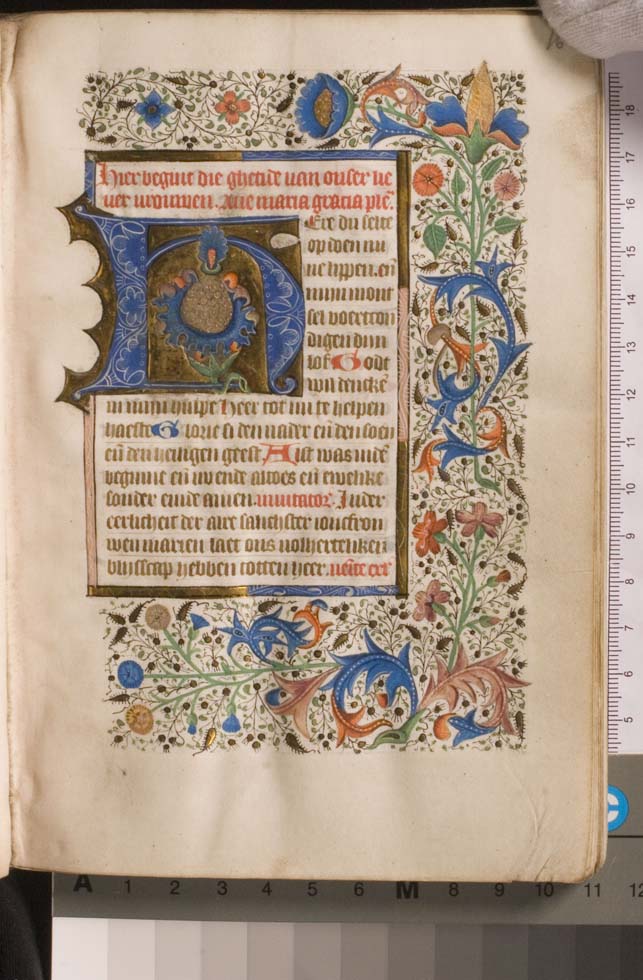 Hier begint die ghetide van onser lie
ver vrouwen. Aue maria gracia ple.
HEre du selte
op doen mi
ne lippen. en
mijn mont
sel voert con
digen dijn
lof. Godt
wil dencke
in mijn hulpe Heer tot mi te helpen
haeste Glorie si den vader en den soen
en den heiligen geest. Alst was inde
beginne en nv ende altoes en ewelike
sonder einde amen. inuitator. In der
eerlicheit der alre salichster ioncfrou
wen marien laet ons volhertelijken
bliisscap hebben totten heer.
18
17
16
15
14
13
12
11
10
9
8
7
6
5
A 1 2 3 4 5 6 M 8 9 10 11 12